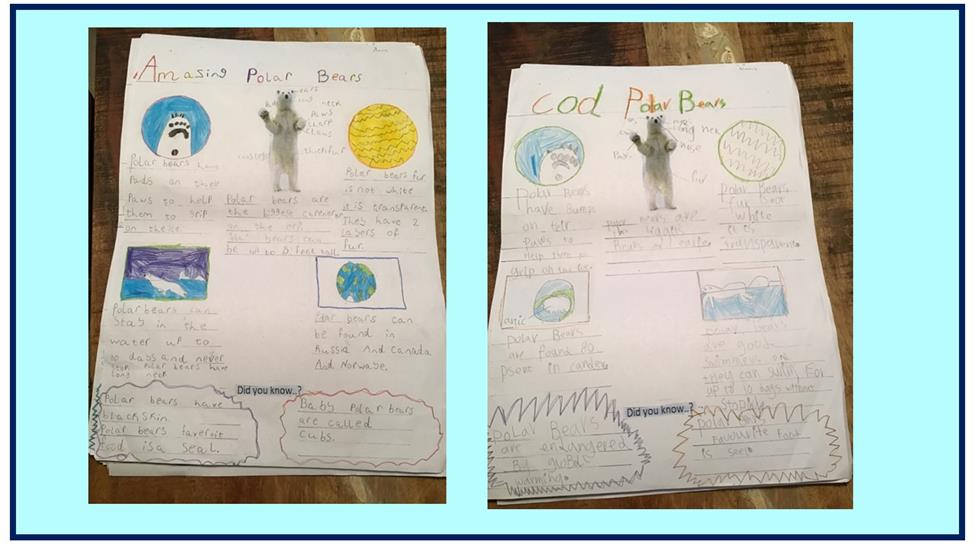 Amazing Polar Bears
ears
neck
Paws
sharp
claws
thickfur
Polar bears have
Pads on their
Paws to help
them to grip
on theice.
Polar bears are
the biggest carnevor
on the
bears can
be up to 8 feet tall
Polar bears fur
is not white
it is transparent
They have 2
layers of
fur.
Polar bears can
Stay in the
water up to
10 days and never
stop Polar bears have
long neck
Polar bears can
be found in
Russia And Canada
And Norwaye.
Did you know..?
Polar bears have
black skin.
Polar bears faverit
food is a seal.
Baby Polar bears
are called
Cubs.
cool Polar Bears
nose
Paw
fur
Polar Bears
have Bumps
on their
Paws to
Help them to
grip on the ice.
Polar bears are
the biggest
Bears on earth.
Polar Bears
fur is not
white
it is
transparent.
Polar Bears
are found 80
in
Polar Bears
are good
swimmers
they can swim For
up to 10 days without
Did you know..?
Polar Bears
are endangered
By global
warming.
Polar Bears
Favourite Food
is